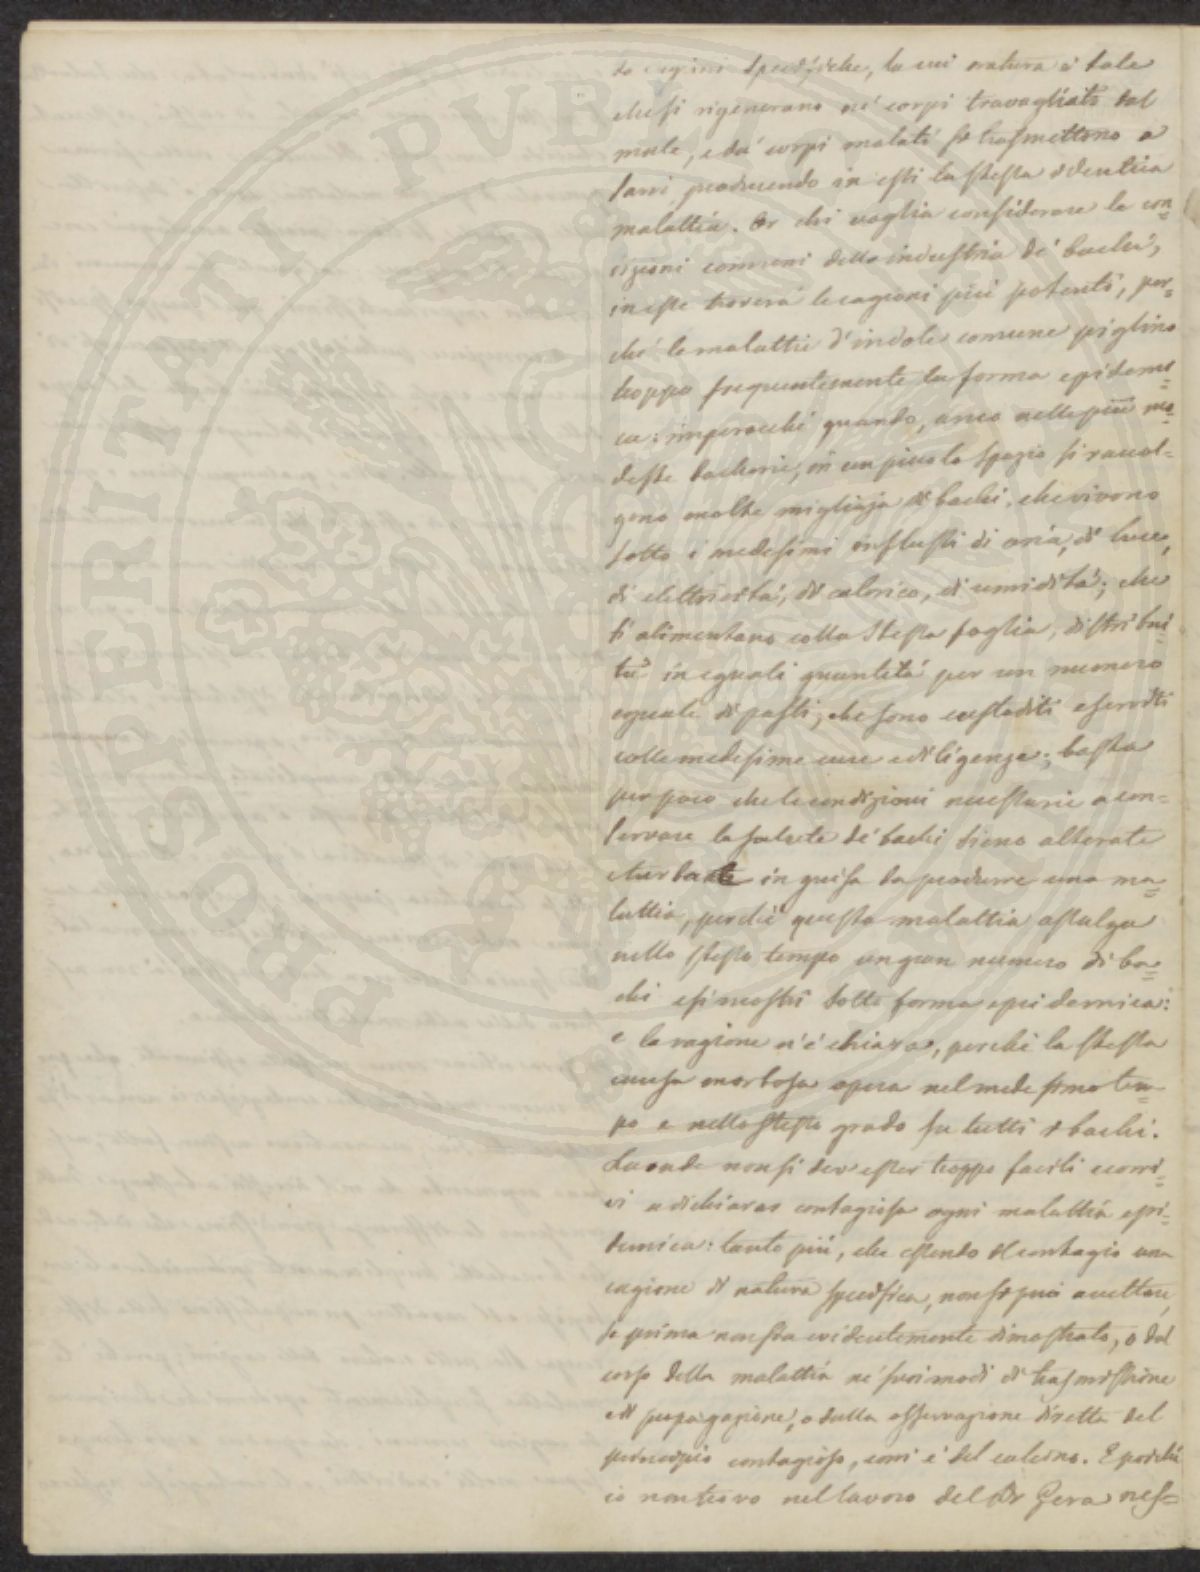 da cagioni specifiche, la cui natura è tale
che si rigenerano ne' corpi travagliati dal
male, e da' corpi malati si trasmettono a'
sani producendo in essi la stessa identica
malattia. Or chi voglia considerare le con=
dizioni comuni della industria de' bachi,
in esse troverà le cagioni più potenti, per=
chè le malattie d'indole comune piglino
troppo frequentemente la forma epidemi=
ca: imperocchè quando, anco nelle più mo=
deste bacherie, in un piccolo spazio si raccol=
gono molte migliaja di bachi, che vivono
sotto i medesimi influssi di aria, di luce,
di elettricità, di calorico, di umidità; che
si alimentano colla stessa foglia, distribui=
ta in eguali quantità per un numero
eguale di pasti; che sono custoditi e serviti
colle medesime cure e diligenze; basta
per poco che le condizioni necessarie a con=
servare la salute de' bachi sieno alterate
e turbate in guisa da produrre una ma=
lattia, perchè questa malattia assalga
nello stesso tempo un gran numero di ba=
chi e si mostri sotto forma epidemica:
e la ragione n'è chiara, perchè la stessa
causa morbosa opera nel medesimo tem=
po e nello stesso grado su tutti i bachi.
Laonde non si dev'esser troppo facili e corri=
vi a dichiarar contagiosa ogni malattia epi=
demica: tanto più, che essendo il contagio una
cagione di natura specifica, non si può accettare,
se prima non sia evidentemente dimostrato, o dal
corso della malattia ne' suoi modi di trasmissione
e di propagazione, o dalla osservazione diretta del
principio contagioso, com'è del calcino. E poichè
io non trovo nel lavoro del Dr Gera nes=
PROSPERITATI PVBLICAE